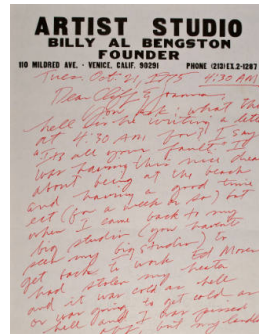 ARTIST STUDIO
BILLY AL BENGSTON
FOUNDER
110 MILDRED AVE. • VENICE, CALIF. 90291 PHONE (213) EX.2-1287
Tues. Oct. 21, 1975 4:30 AM
Dear Cliff & Joanna,
You ask: what the
hell is he writing a letter
at 4:30 AM for? I say
"It's all your fault" I
was having this nice dream
about being at the beach
and having a good time
ect (for a week or so) but
when I came back to my
big studio (you havent
seen my big studio) to
get back to work Ed Moses
had stolen my heater
and it was cold as hell
or was going to get cold as
hell and I was pissed
but my